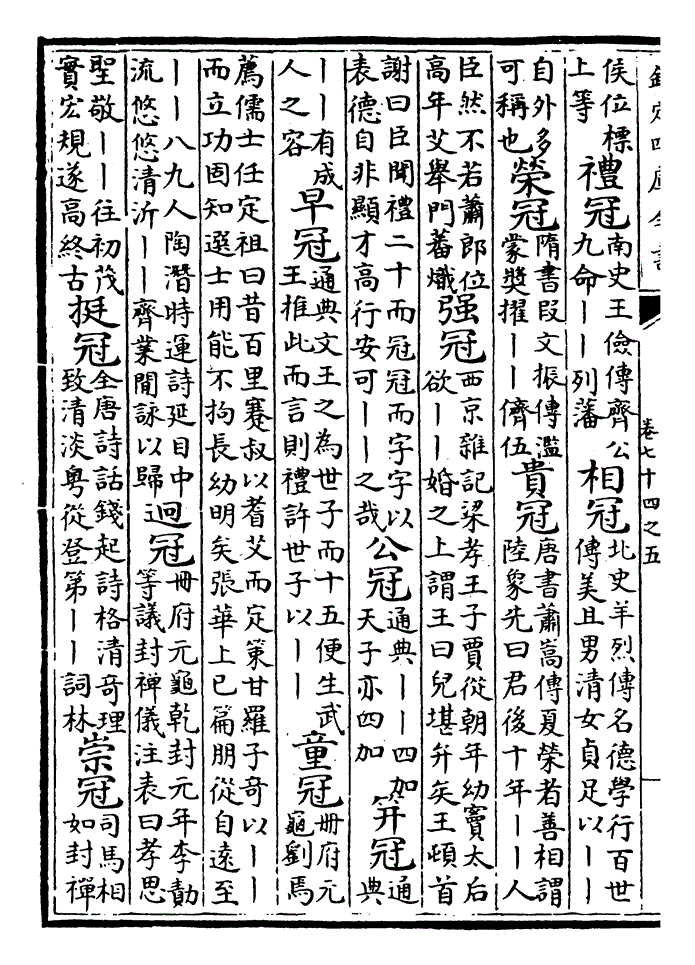 欽定四庫全書 卷七十四之五
侯位標
上等
禮冠
南史王儉傳齊公
九命丨丨列藩
相冠
北史羊烈傳名德學行百世
傳美且男清女貞足以丨丨
自外多
可稱也
榮冠
隋書段文振傳濫
蒙奬擢丨丨儕伍
貴冠
唐書蕭嵩傳夏榮者善相謂
陸象先曰君後十年丨丨人
臣然不若蕭郎位
高年艾舉門蕃熾
强冠
西京雜記梁孝王子賈從朝年幼竇太后
欲丨丨婚之上謂王曰兒堪弁矣王頓首
謝曰臣聞禮二十而冠冠而字字以
表德自非顯才高行安可丨丨之哉
公冠
通典丨丨四加
天子亦四加
笄冠
通
典
丨丨有成
人之容
早冠
通典文王之為世子而十五便生武
王推此而言則禮許世子以丨丨
童冠
冊府元
龜劉焉
薦儒士任定祖曰昔百里蹇叔以耆艾而定策甘羅子奇以丨丨
而立功固知選士用能不拘長幼明矣張華上巳篇朋從自遠至
丨丨八九人陶潛時運詩延目中
流悠悠清沂丨丨齊業閒詠以歸
迥冠
冊府元龜乾封元年李勣
等議封禪儀注表曰孝思
聖敬丨丨往初茂
實宏規遂高終古
挺冠
全唐詩話錢起詩格清奇理
致清淡粤從登第丨丨詞林
崇冠
司馬相
如封禪